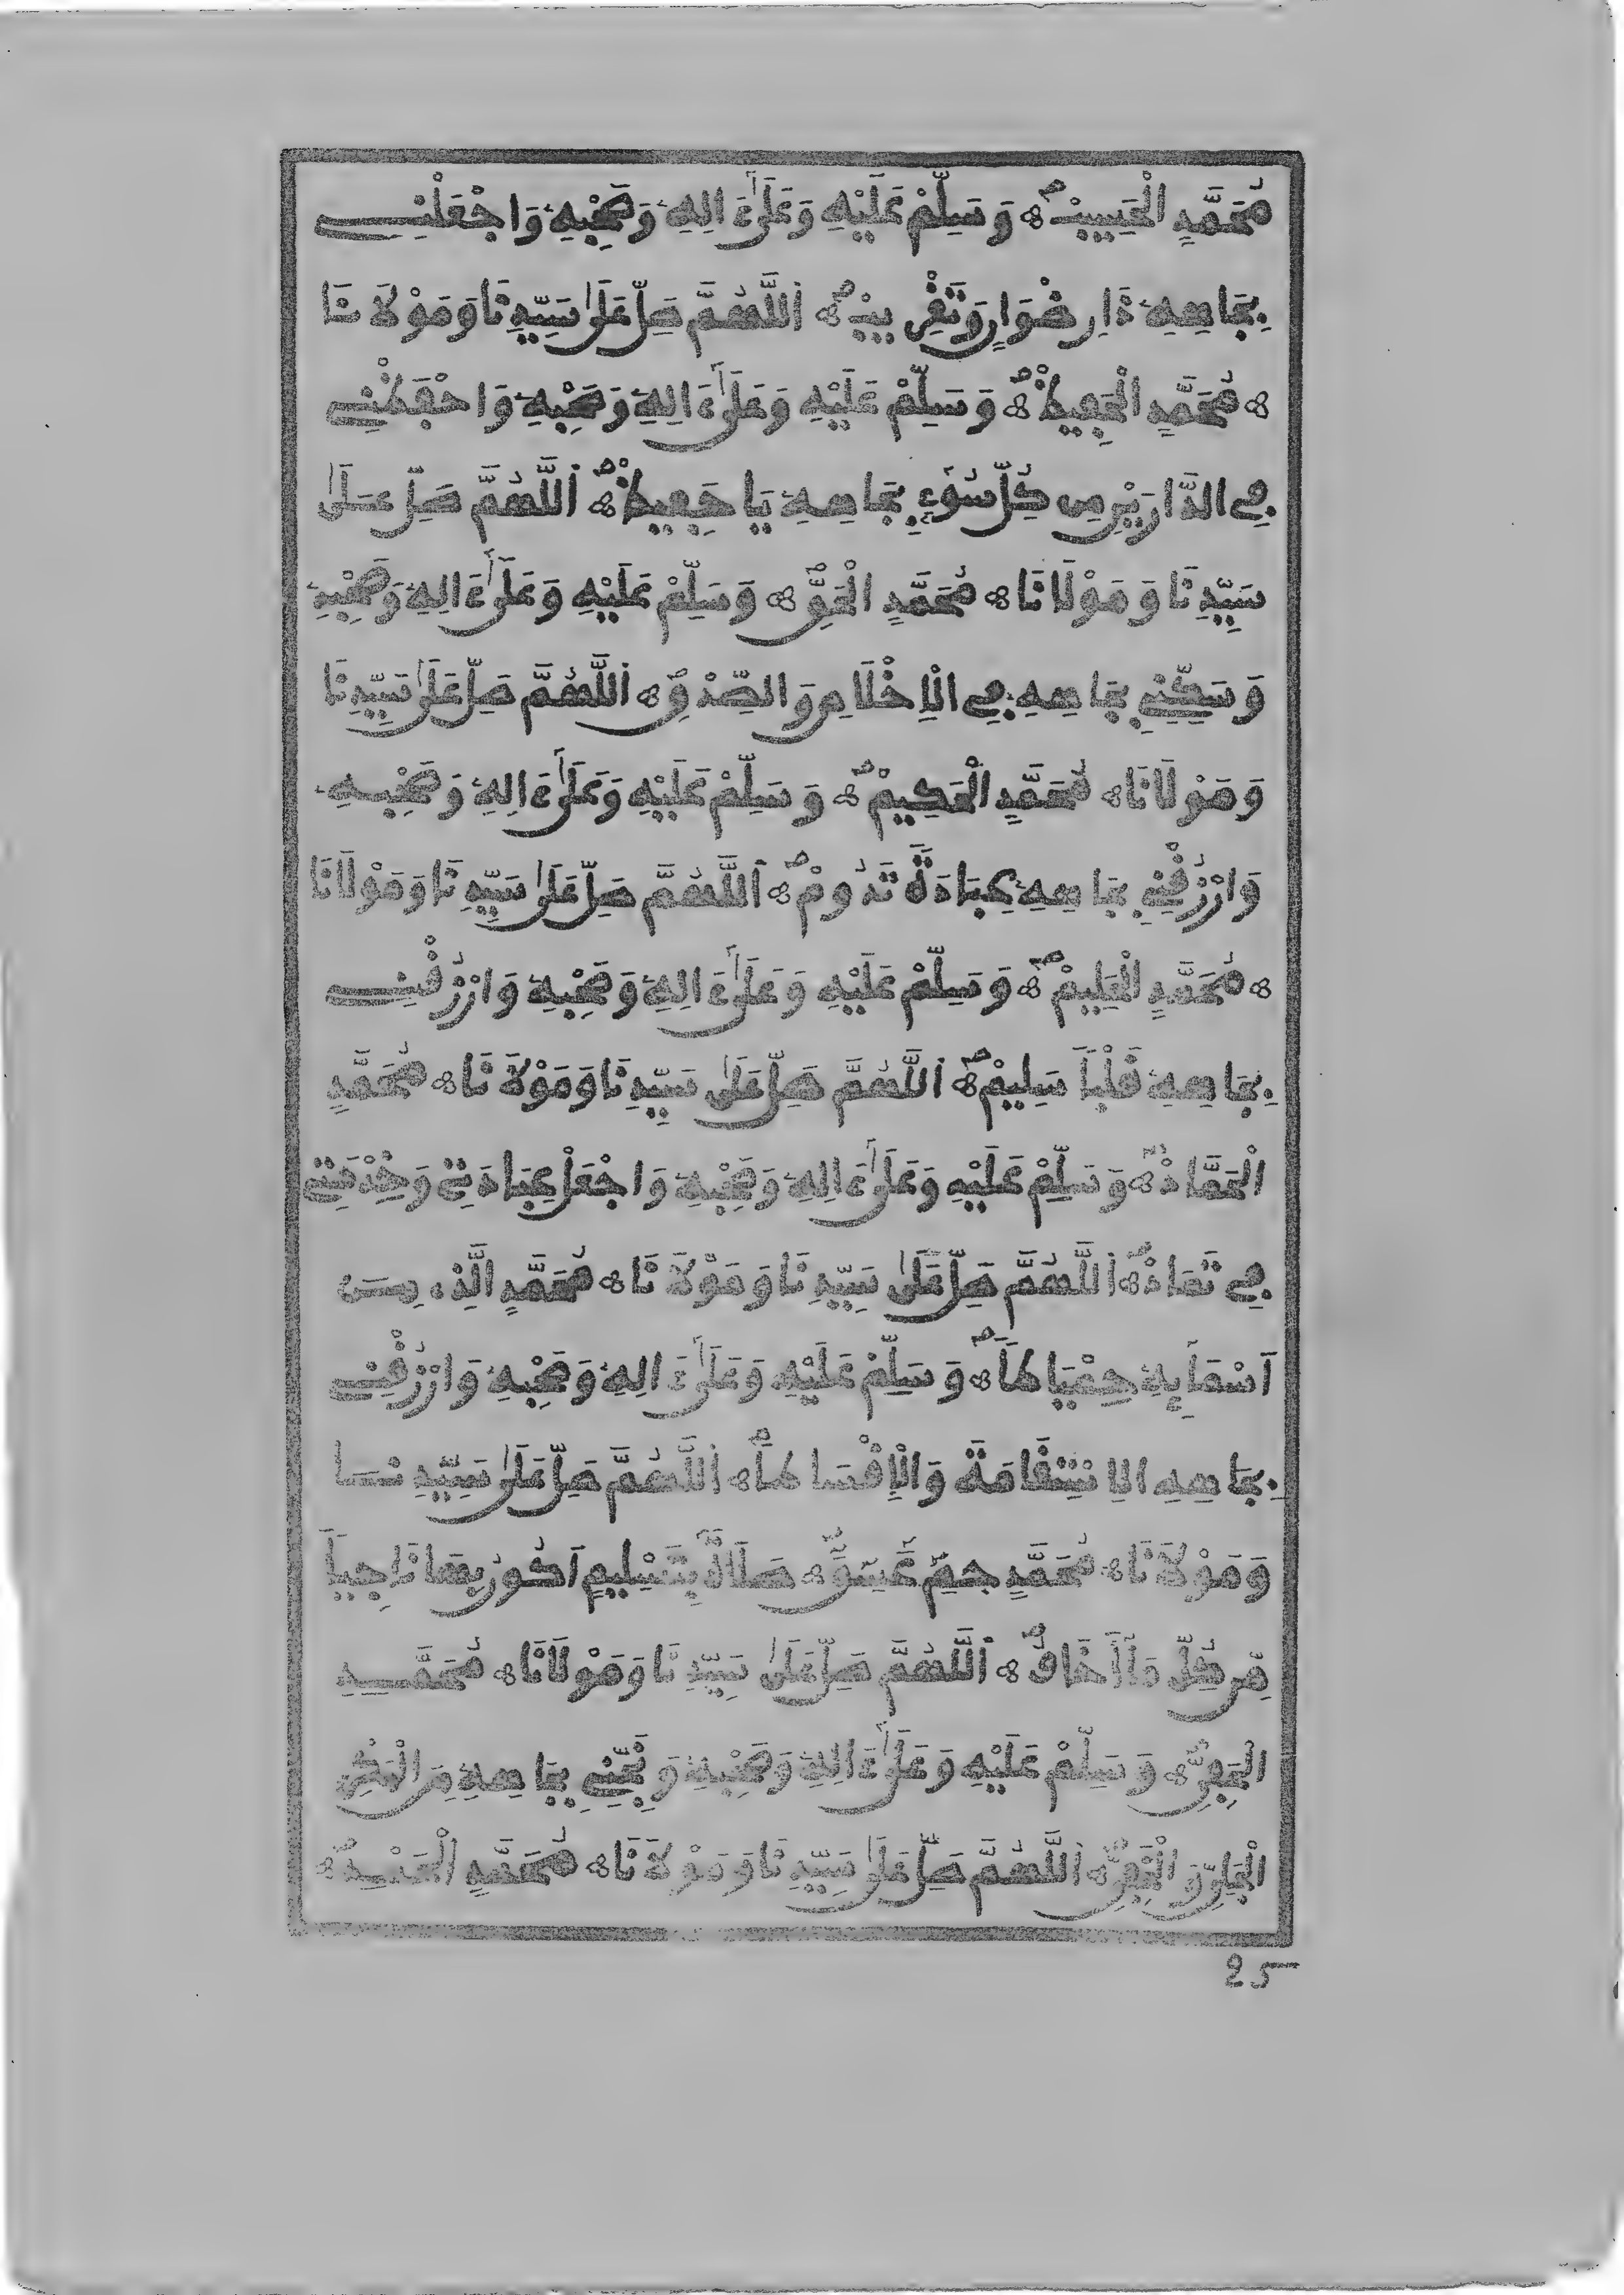 مُحَمَّدٍ الْحَسِيبْ وَسَلِّمْ عَلَيْهِ وَعَلَىٰٓ ءَالِهِ وَصَحْبِهِ وَاجْعَلْنِے
بِجَاهِهِ ذَا رِضْوَانٍ وَتَقْرِيبْ اَللَّهُمَّ صَلِّ عَلَىٰ سَيِّدِنَا وَمَوْلَانَا
مُحَمَّدٍ الْحَفِيظْ وَسَلِّمْ عَلَيْهِ وَعَلَىٰٓ ءَالِهِ وَصَحْبِهِ وَاحْفَظْنِے
فِے الدَّارَيْنِ مِن كُلِّ سُوٓءٍ بِجَاهِهِ يَا حَفِيظْ اَللَّهُمَّ صَلِّ عَلَىٰ
سَيِّدِنَا وَمَوْلَانَا مُحَمَّدٍ الْحَقِّ وَسَلِّمْ عَلَيْهِ وَعَلَىٰٓ ءَالِهِ وَصَحْبِهِ
وَسَكِّنِّے بِجَاهِهِ فِے الْاِخْلَاصِ وَالصِّدْقِ اَللَّهُمَّ صَلِّ عَلَىٰ سَيِّدِنَا
وَمَوْلَانَا مُحَمَّدٍ الْحَكِيمْ وَسَلِّمْ عَلَيْهِ وَعَلَىٰٓ ءَالِهِ وَصَحْبِهِ
وَارْزُقْنِے بِجَاهِهِ عِبَادَةً تَدُومْ اَللَّهُمَّ صَلِّ عَلَىٰ سَيِّدِنَا وَمَوْلَانَا
مُحَمَّدٍ الْحَلِيمْ وَسَلِّمْ عَلَيْهِ وَعَلَىٰٓ ءَالِهِ وَصَحْبِهِ وَارْزُقْنِے
بِجَاهِهِ قَلْباً سَلِيمْ اَللَّهُمَّ صَلِّ عَلَىٰ سَيِّدِنَا وَمَوْلَانَا مُحَمَّدٍ
الْحَمَّادْ وَسَلِّمْ عَلَيْهِ وَعَلَىٰٓ ءَالِهِ وَصَحْبِهِ وَاجْعَلْ عِبَادَتِے وَخِدْمَتِے
فِے تَمَادْ اَللَّهُمَّ صَلِّ عَلَىٰ سَيِّدِنَا وَمَوْلَانَا مُحَمَّدٍ الَّذِے مِنَ
اَسْمَآئِهِ حِمْيَاطَا وَسَلِّمْ عَلَيْهِ وَعَلَىٰٓ ءَالِهِ وَصَحْبِهِ وَارْزُقْنِے
بِجَاهِهِ الِاسْتِقَامَةَ وَالْاِقْسَاطَا اَللَّهُمَّ صَلِّ عَلَىٰ سَيِّدِنَا
وَمَوْلَانَا مُحَمَّدٍ حمٓ عٓسٓقٓ صَلَاةً بِتَسْلِيمٍ اَكُونُ بِهَا نَاجِياً
مِّن كُلِّ مَآ أَخَافُ اَللَّهُمَّ صَلِّ عَلَىٰ سَيِّدِنَا وَمَوْلَانَا مُحَمَّدٍ
الْحَفِيِّ وَسَلِّمْ عَلَيْهِ وَعَلَىٰٓ ءَالِهِ وَصَحْبِهِ وَنَجِّنِے بِجَاهِهِ مِنَ
الْجَلِيِّ وَالْخَفِيِّ اَللَّهُمَّ صَلِّ عَلَىٰ سَيِّدِنَا وَمَوْلَانَا مُحَمَّدٍ الْحَمْدِ
25